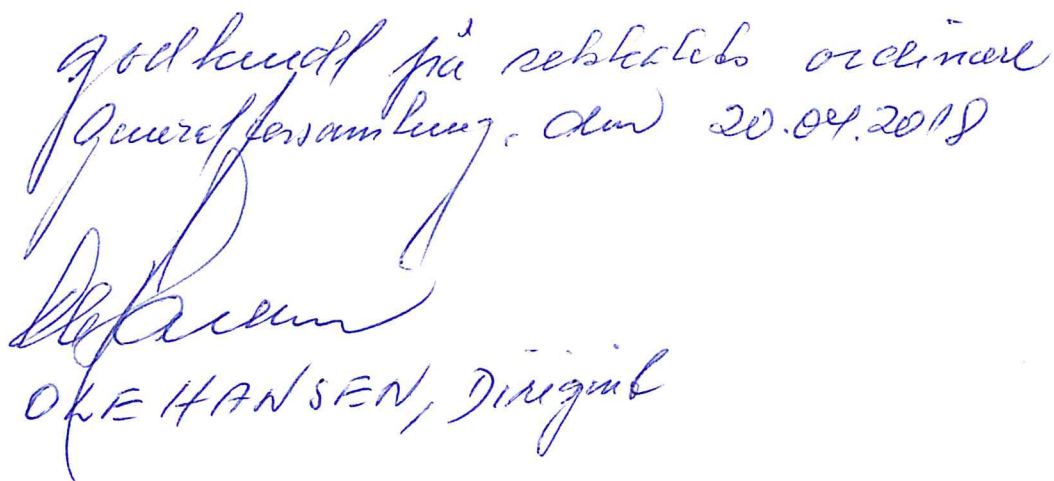 godkendt på selskabets ordinære
generalforsamling. den 20.04.2018
OLE HANSEN, Dirigent